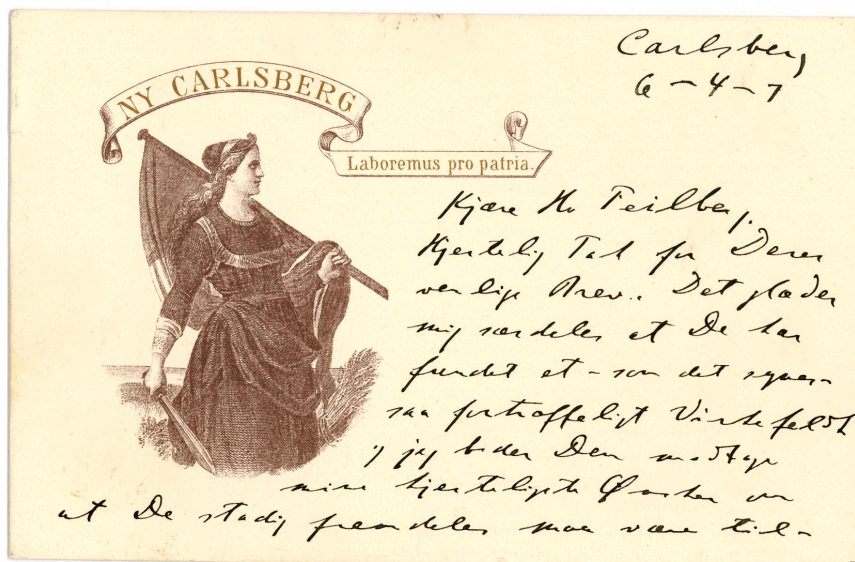 NY CARLSBERG
Laboremus pro patria.
Carlsberg
6 - 4 - 7
Kjære Hr Feilberg.
Hjertelig Tak for Deres
venlige Brev. Det glæder
mig særdeles at De har
fundet et - som det synes -
saa fortræffeligt Virkefeldt
jeg beder Dem modtage
mine hjerteligste Ønsker om
at De stadig fremdeles maa være til-